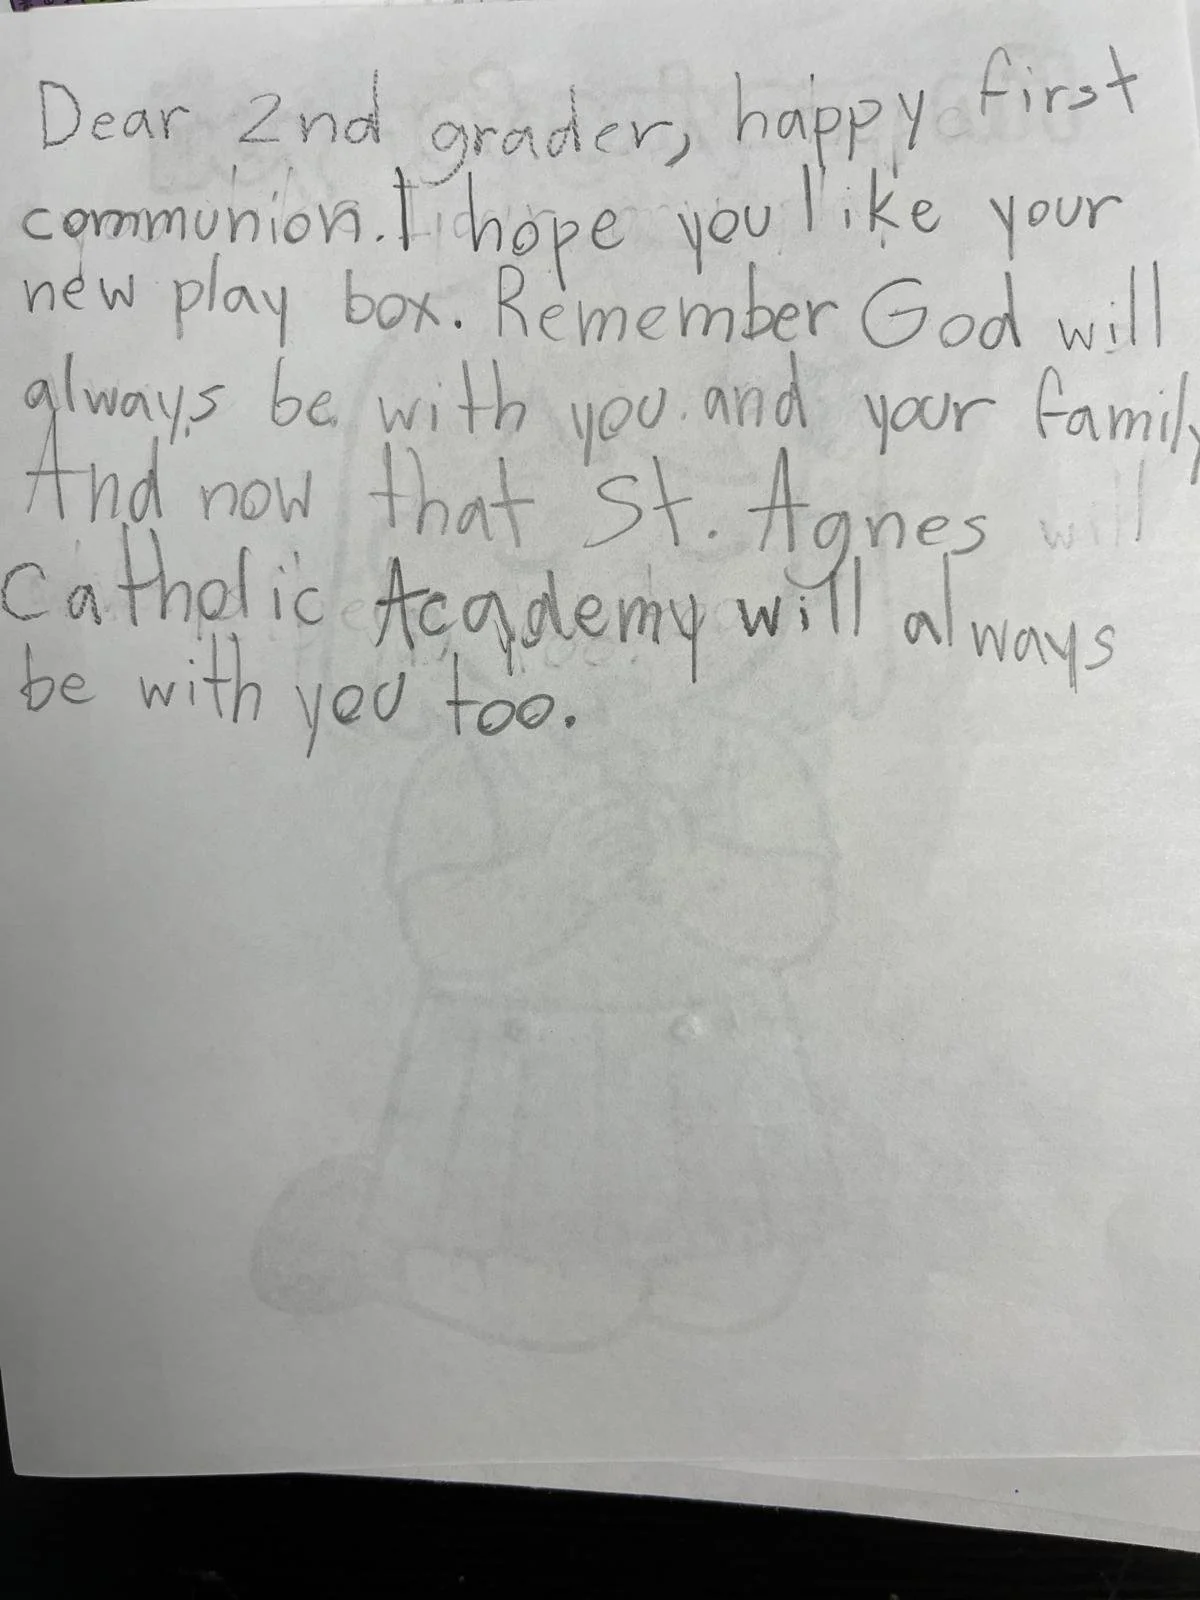 Dear 2nd grader, happy first
communion. I hope you like your
new play box. Remember God will
always be with you and your family
And now that St. Agnes will
Catholic Academy will always
be with you too.